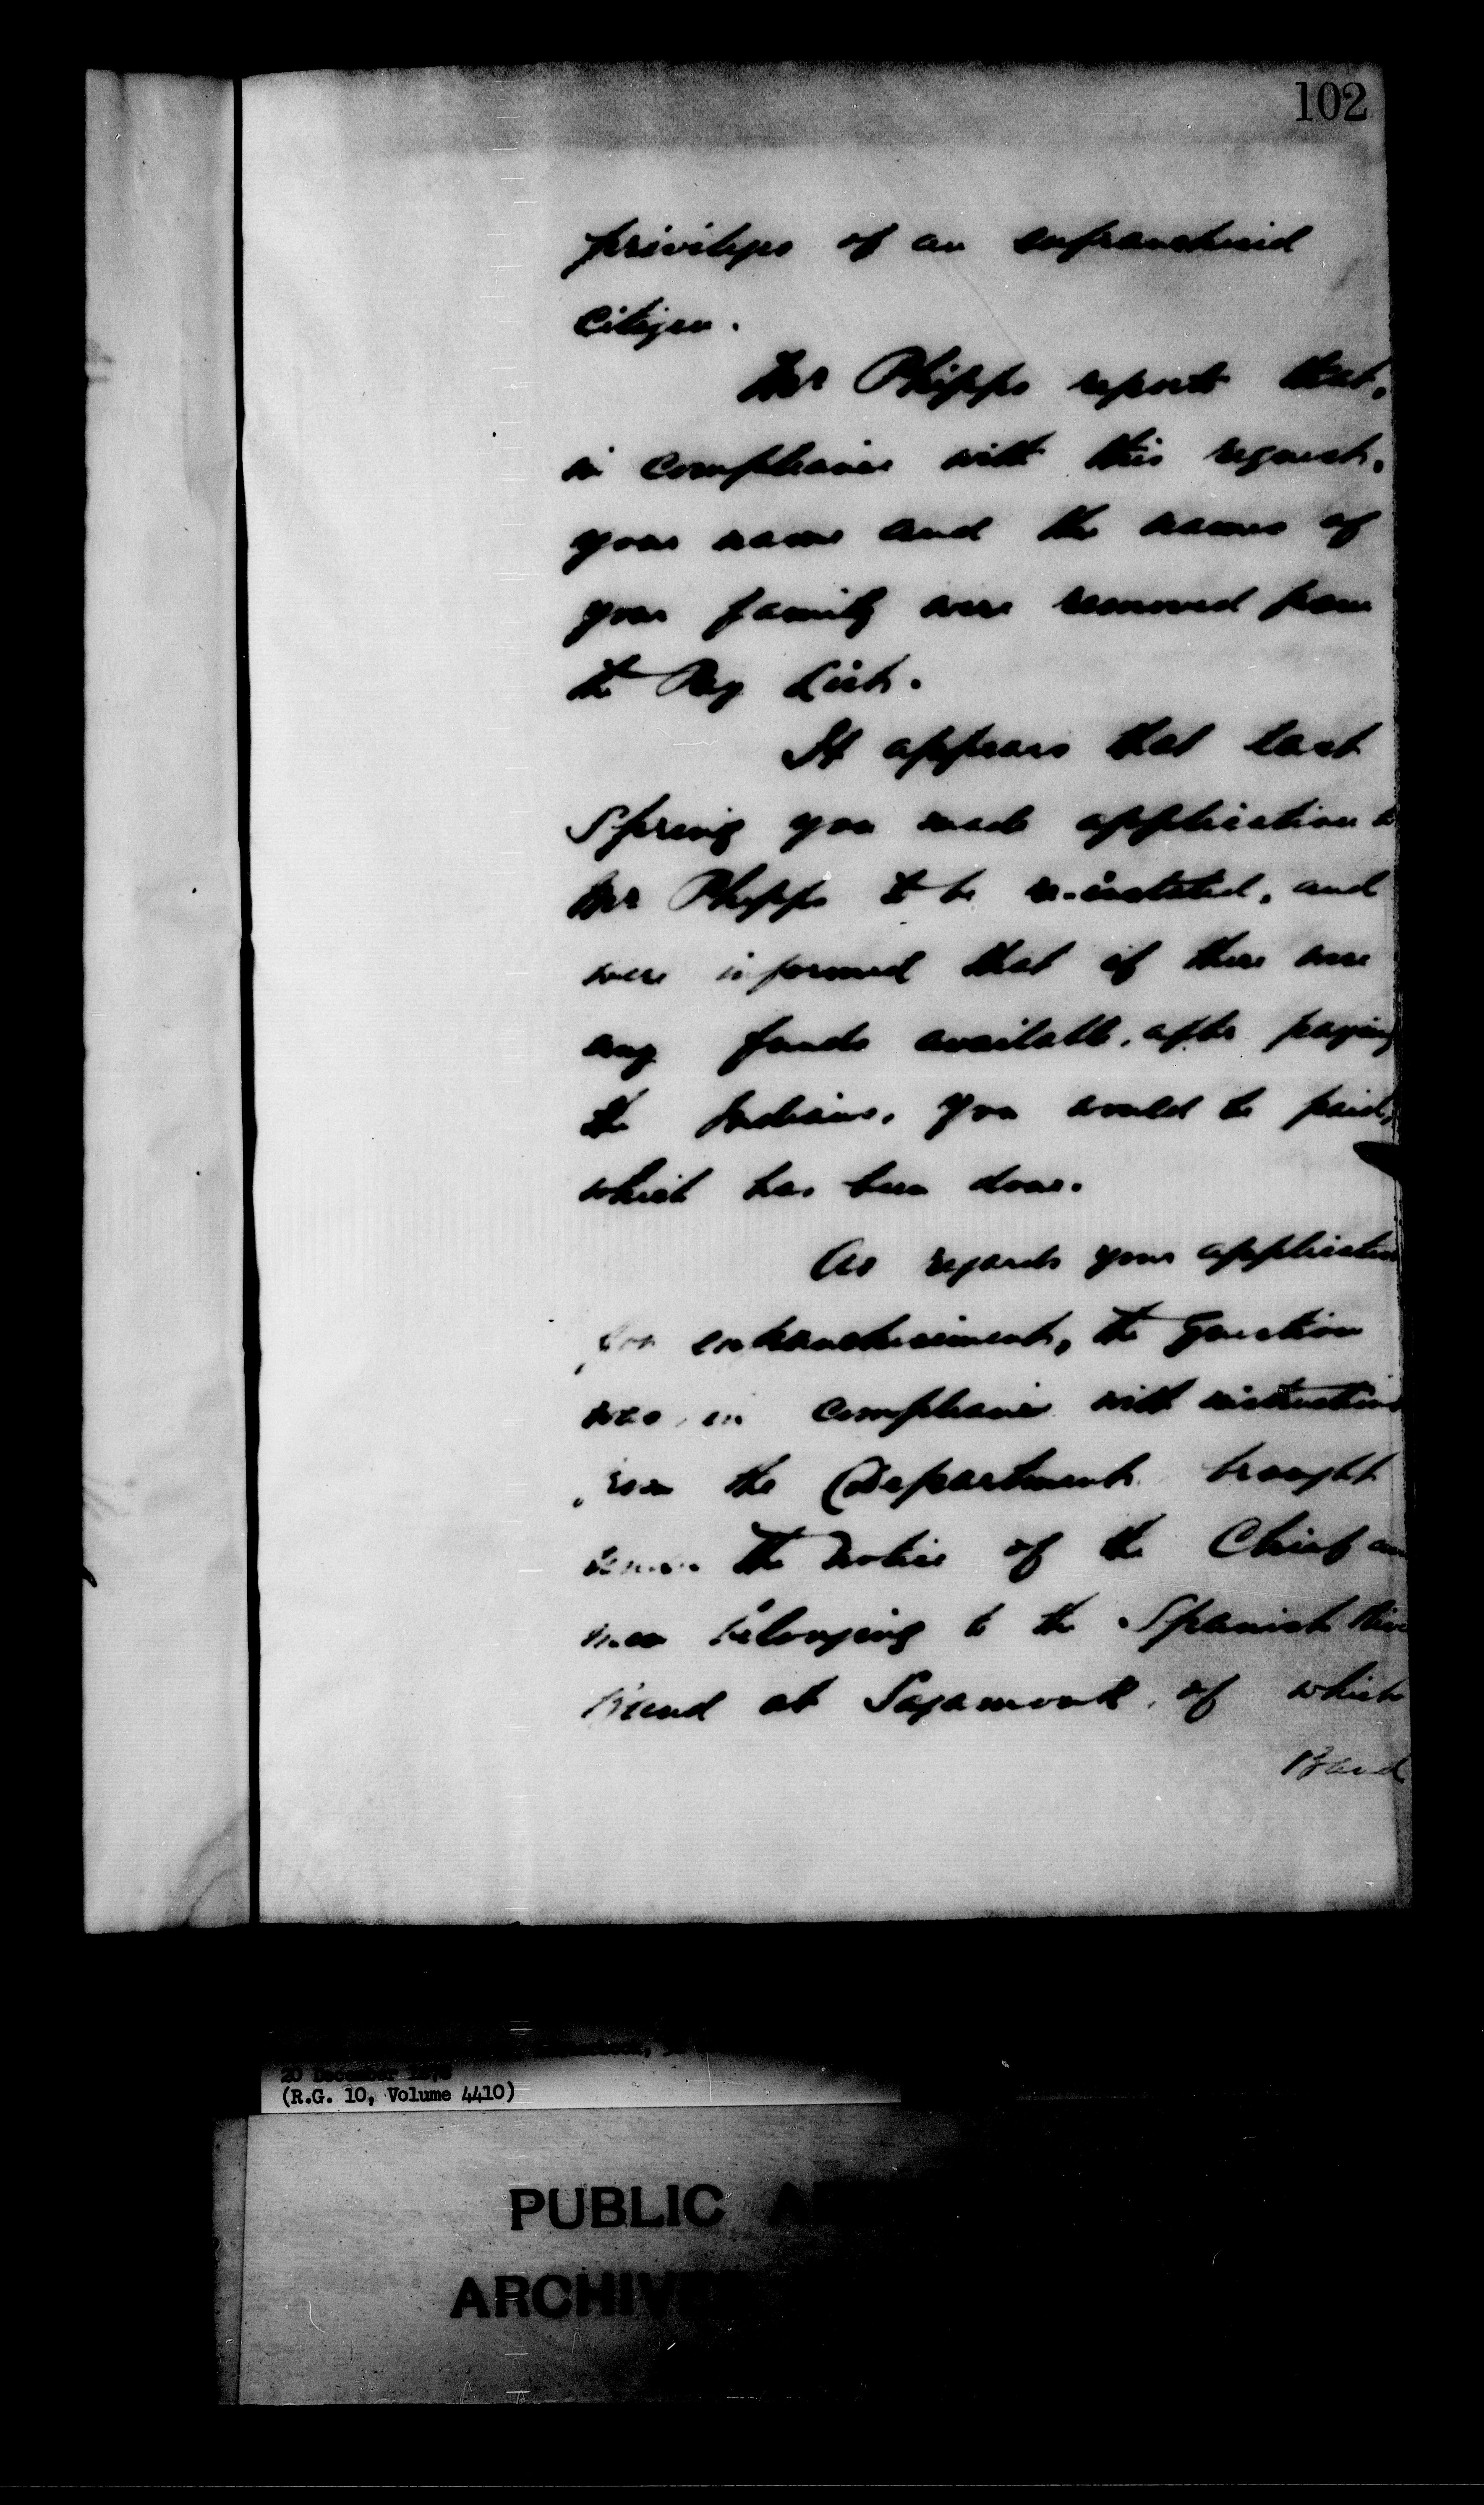 102
privileges of an enfranchised
Citizen.
Mr Phipps reports that,
in compliance with this request,
your name and the names of
your family were removed from
the Pay List.
It appears that last
Spring you made application to
Mr Phipps to be re-instated, and
were informed that if there were
any funds available, after paying
the Indians, you would be paid,
which has been done.
As regards your application
for enfranchisement, the question
was, in compliance with instructions
from the Department brought
the notice of the Chief and
men belonging to the Spanish River
Band at Sagamook, of which
Band
20 December
(R.G. 10, Volume 4410)
PUBLIC
ARCHIVES